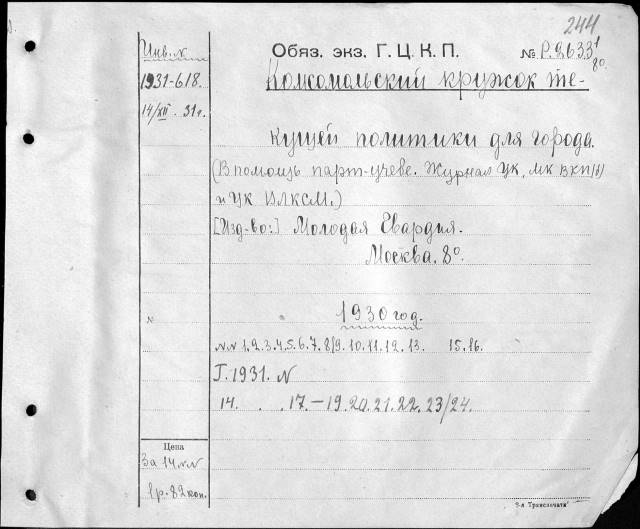 244
Инв. №
Обяз. экз. Г. Ц. К. П.
№ Р.9633¹
8º
1931-618.
14/XII. 31г.
Комсомольский кружок те-
кущей политики для города.
(В помощь парт-учебе. Журнал ЦК, МК ВКП/б/
и ЦК ВЛКСМ.)
[Изд-во:] Молодая Гвардия.
Москва. 8º.
№
1930 год.
№№ 1.2.3.4.5.6.7.8/9.10.11.12.13. 15.16.
Г. 1931. №
14. . . 17.—19.20.21.22.23/24.
Цена
За 14 №№
1р.82коп.
3-я Транспечати